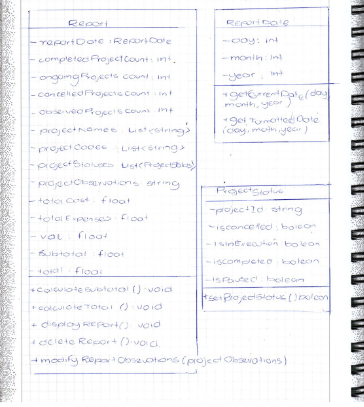 Report
- reportDate : ReportDate
- completedProjectCount : int
- ongoingProjects count : int
- cancelledProjects count : int
- observedProjects count : int
- projectNames : List<string>
- projectCodes : List<string>
- projectStatuses List<ProjectStatus>
- projectObservations string
- totalCost : float
- totalExpenses : float
- vat : float
- Subtotal : float
- total : float
+ calculateSubtotal () : void
+ calculateTotal () : void
+ displayReport() : void
+ deleteReport() : void
+ modifyReportObservations (projectObservations)
ReportDate
- day : int
- month : int
- year : int
+ getCurrentDate (day,
month, year)
+ getFormattedDate
(day, month, year)
ProjectStatus
- projectId string
- iscancelled : bolean
- isInExecution bolean
- iscompleted : bolean
- isPaused : bolean
+ setProjectStatus () bolean